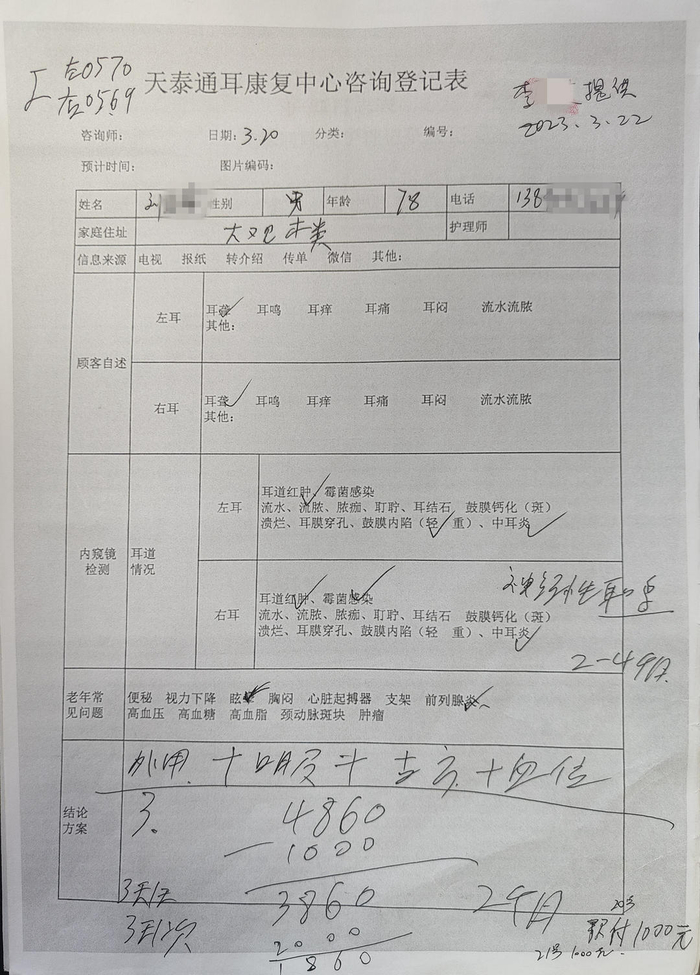 左0570
右0569
天泰通耳康复中心咨询登记表
李 提供
2023.3.22
咨询师： 日期：3.20 分类： 编号：
预计时间： 图片编码：
姓名 刘 性别 男 年龄 78 电话 138
家庭住址 护理师
信息来源 电视 报纸 转介绍 传单 微信 其他：
顾客自述
左耳 耳聋 耳鸣 耳痒 耳痛 耳闷 流水流脓
其他：
右耳 耳聋 耳鸣 耳痒 耳痛 耳闷 流水流脓
其他：
内窥镜检测 耳道情况
左耳 耳道红肿、霉菌感染
流水、流脓、脓痂、耵聍、耳结石 鼓膜钙化（斑）
溃烂、耳膜穿孔、鼓膜内陷（轻 重）、中耳炎
右耳 耳道红肿、霉菌感染
流水、流脓、脓痂、耵聍、耳结石 鼓膜钙化（斑）
溃烂、耳膜穿孔、鼓膜内陷（轻 重）、中耳炎
神经性耳聋
2-4个月
老年常见问题 便秘 视力下降 眩晕 胸闷 心脏起搏器 支架 前列腺炎
高血压 高血糖 高血脂 颈动脉斑块 肿瘤
结论方案
外用 + 口服 + + 穴位
3. 4860
-1000
3860 2个月
2000
1860
20号
付1000元
21号 1000元